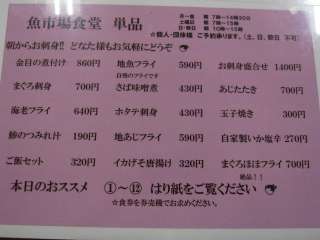 魚市場食堂 単品
月～金 朝 7時～14時30分
土曜日 朝 7時～15時
日・祭日 朝 10時～15時
☆個人・団体様 ご予約承ります。(土、日、祭日 不可)
朝からお刺身!! どなた様もお気軽にどうぞ
金目の煮付け 860円 地魚フライ 590円 お刺身盛合せ 1400円
自慢のフライです
まぐろ刺身 700円 さば味噌煮 430円 あじたたき 700円
海老フライ 640円 ホタテ刺身 430円 玉子焼き 300円
鯵のつみれ汁 190円 地あじフライ 590円 自家製いか塩辛 270円
ご飯セット 320円 イカげそ唐揚げ 320円 まぐろほほフライ 700円
絶品!!
本日のおススメ ①～⑫ はり紙をご覧ください
☆食券を券売機でお求めください。